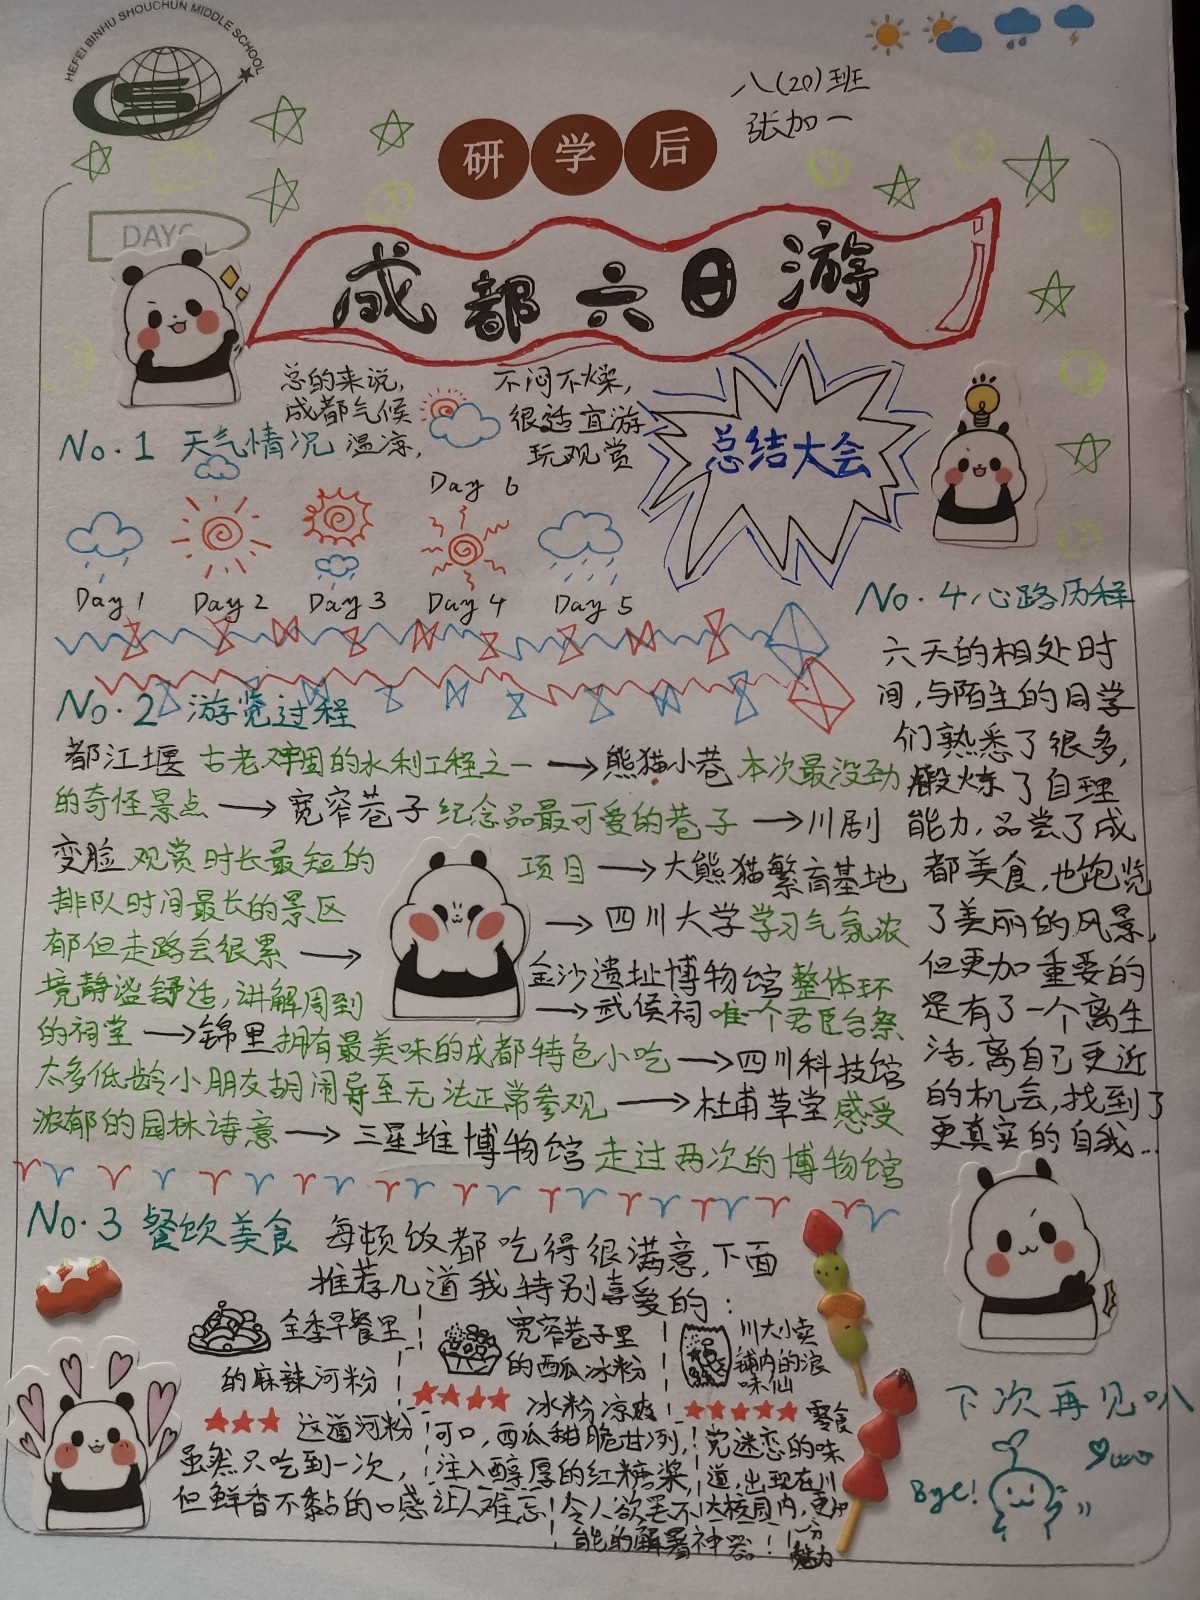 HEFEI BINHU SHOUCHUN MIDDLE SCHOOL
八(20)班
张加一
研学后
DAYS
成都六日游
总的来说,
成都气候
温凉,
不闷不燥,
很适宜游
玩观赏
No.1 天气情况
总结大会
Day 6
Day 1 Day 2 Day 3 Day 4 Day 5
No.2 游览过程
都江堰 古老牢固的水利工程之一 → 熊猫小巷 本次最没劲
的奇怪景点 → 宽窄巷子 纪念品最可爱的巷子 → 川剧
变脸 观赏时长最短的 项目 → 大熊猫繁育基地
排队时间最长的景区 → 四川大学 学习气氛浓
郁但走路会很累 → 金沙遗址博物馆 整体环
境静谧舒适,讲解周到 → 武侯祠 唯一个君臣合祭
的祠堂 → 锦里 拥有最美味的成都特色小吃 → 四川科技馆
太多低龄小朋友胡闹导至无法正常参观 → 杜甫草堂 感受
浓郁的园林诗意 → 三星堆博物馆 走过两次的博物馆
No.4 心路历程
六天的相处时
间,与陌生的同学
们熟悉了很多,
锻炼了自理
能力,品尝了成
都美食,也饱览
了美丽的风景,
但更加重要的
是有了一个离生
活,离自己更近
的机会,找到了
更真实的自我…
No.3 餐饮美食
每顿饭都吃得很满意,下面
推荐几道我特别喜爱的:
全季早餐里
的麻辣河粉
这道河粉
虽然只吃到一次,
但鲜香不黏的口感让人难忘
宽窄巷子里
的西瓜冰粉
冰粉凉爽
可口,西瓜甜脆甘冽,
注入醇厚的红糖浆,
令人欲罢不
能的解暑神器!
川大小卖
铺内的浪
味仙
零食
完迷恋的味
道,出现在川
大校园内,更加
一分
魅力
下次再见叭
Bye!